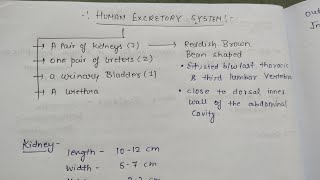 : HUMAN EXCRETORY SYSTEM :-
→ A Pair of kidneys (2) → Reddish Brown
Bean shaped
→ one pair of Ureters (2)
• Situated b/w last thoracic
& third lumbar vertebra
→ a urinary Bladder (1)
→ A urethra
• close to dorsal inner
wall of the abdominal
cavity.
Kidney-
length - 10-12 cm
width - 5-7 cm
2-3 cm
Out
In